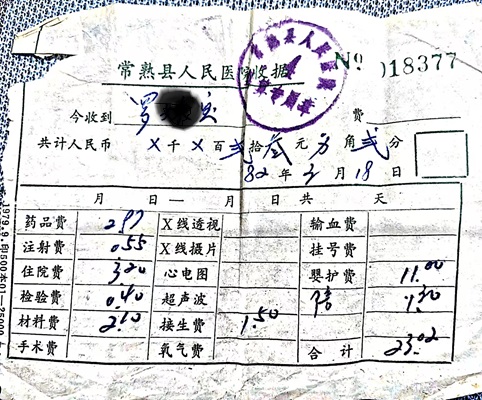 常熟县人民医院收据
No 018377
常熟县人民医院
今收到 罗 费
共计人民币 X千X百弍拾叁元另角弍分
82年3月18日
月 日— 月 日共 天
药品费 2.97 X线透视 输血费
注射费 0.55 X线摄片 挂号费
住院费 3.20 心电图 婴护费 11.00
检验费 0.40 超声波 陪 1.30
材料费 2.10 接生费 1.50
手术费 氧气费 合计 23.02
1979.9.印500本01—25000